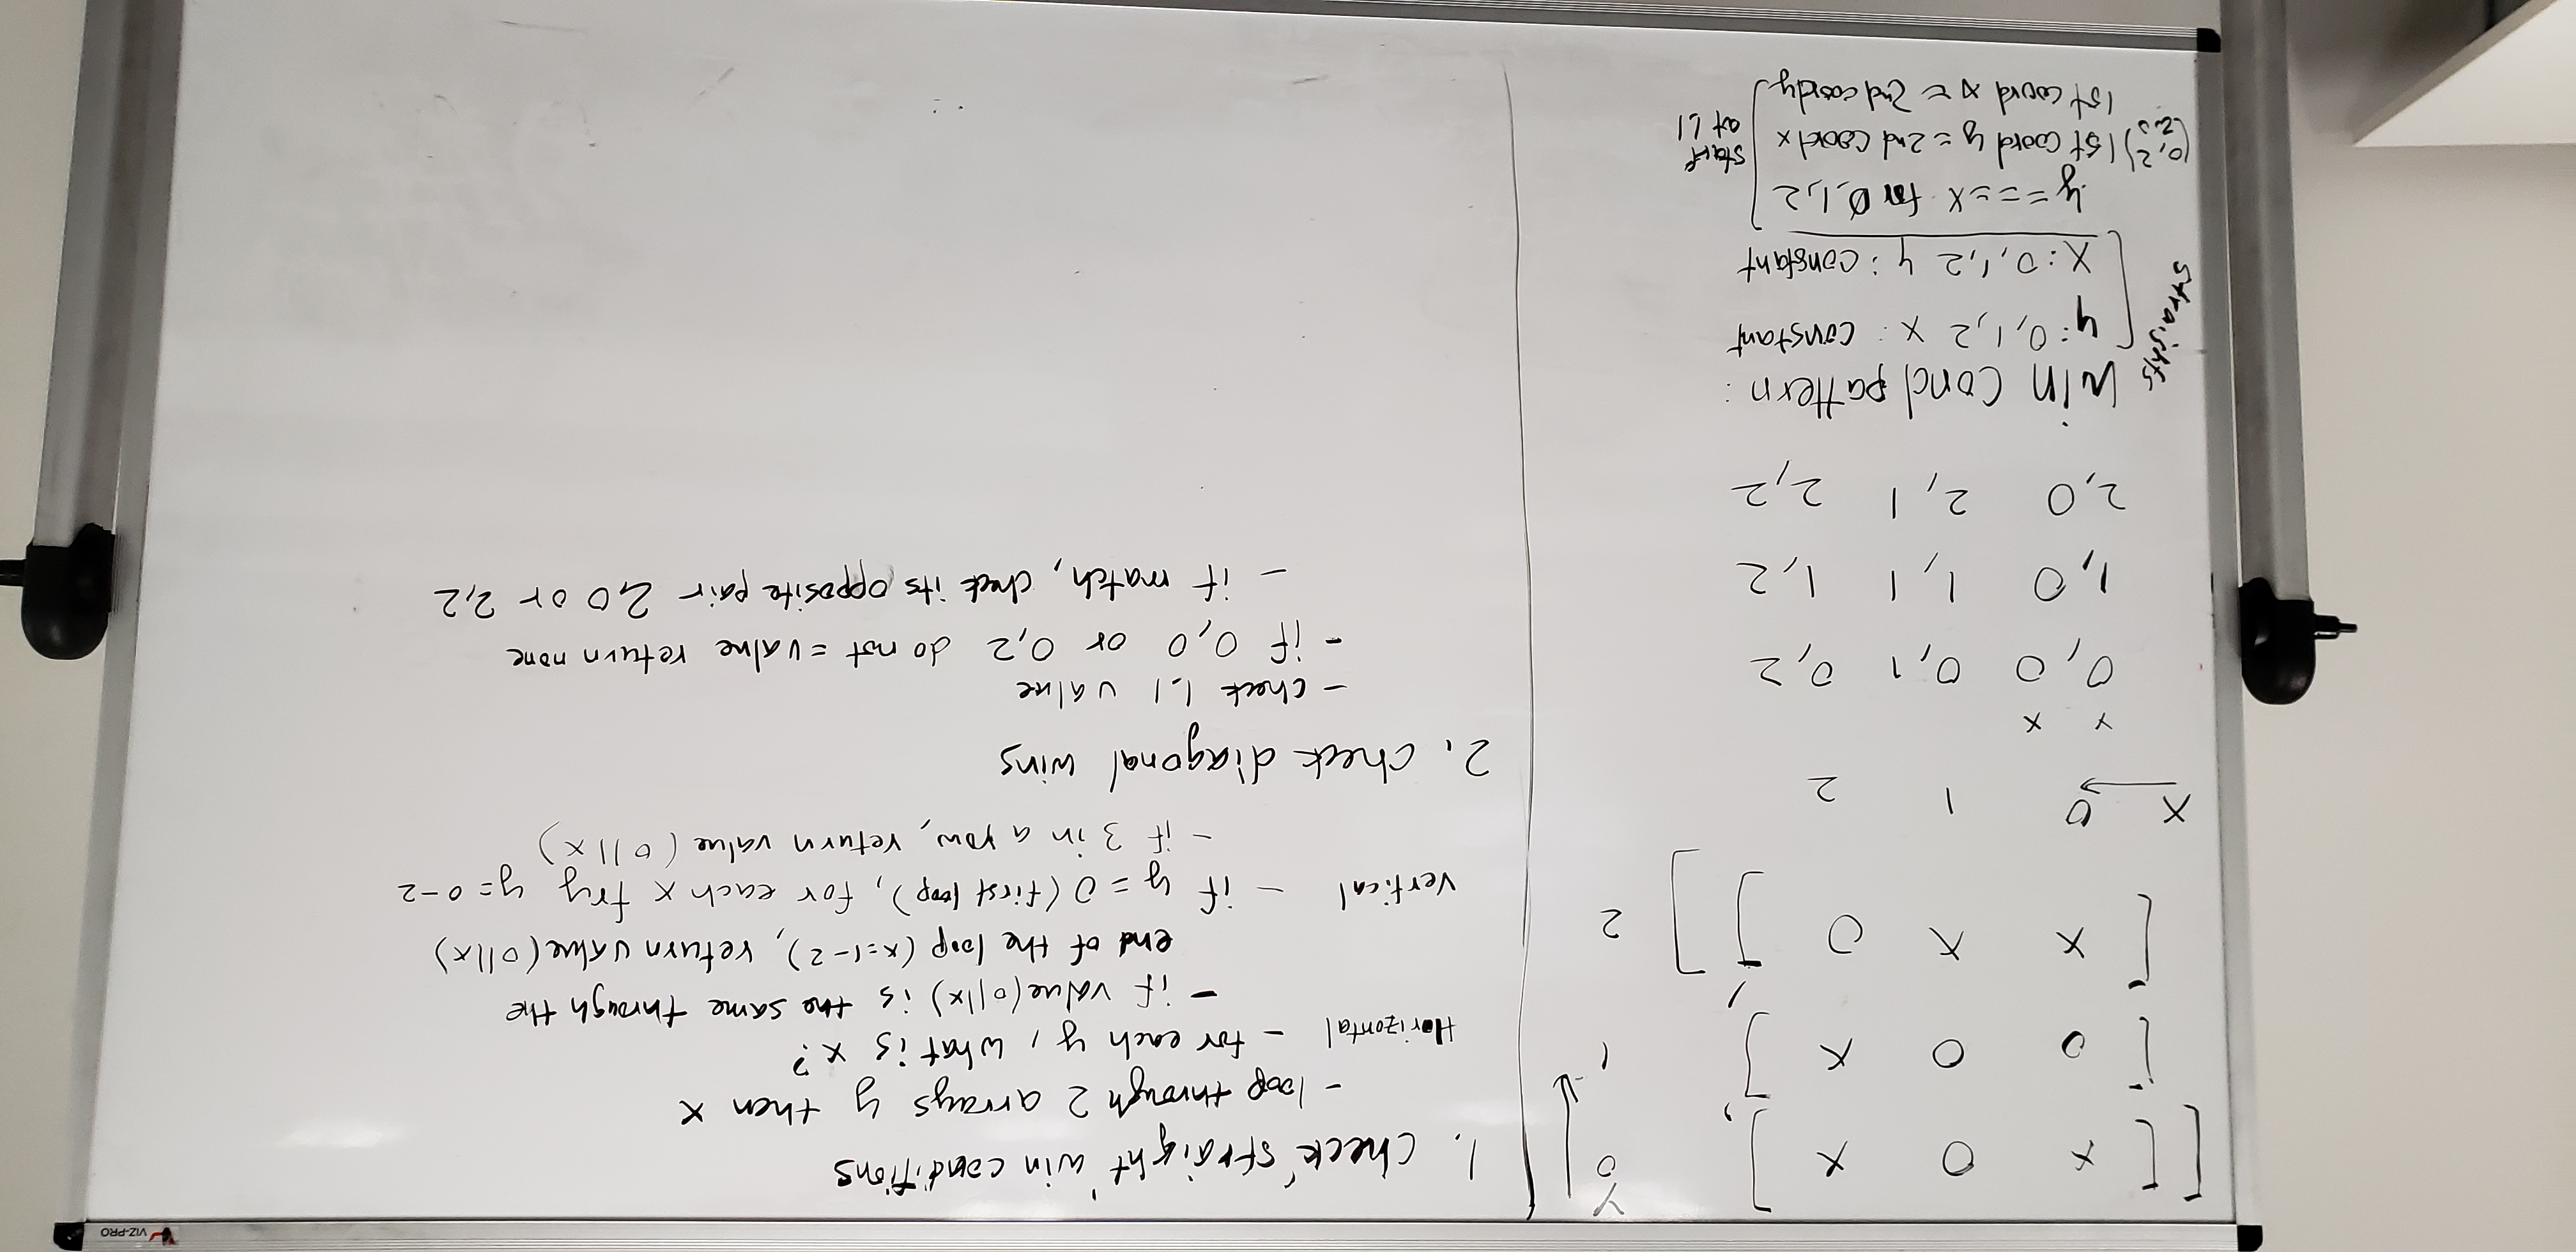 VIZ-PRO
[[ x 0 x ], Y 0
[ 0 0 x ], 1
[ x x 0 ]] 2
X 0 1 2
Y X
0,0 0,1 0,2
1,0 1,1 1,2
2,0 2,1 2,2
win cond pattern:
straights
y: 0,1,2 x: constant
X: 0,1,2 y: constant
y===X for 0,1,2
(0,2) 1st coord y = 2nd coord x
(2,0)
1st coord x = 2nd coord y
start
at 1,1
1. check 'straight' win conditions
- loop through 2 arrays y then x
Horizontal - for each y, what is x?
- if value(o||x) is the same through the
end of the loop (x=1-2), return value(o||x)
Vertical - if y=0 (first loop), for each x try y=0-2
- if 3 in a row, return value (o||x)
2. check diagonal wins
- check 1,1 value
- if 0,0 or 0,2 do not = value return none
- if match, check its opposite pair 2,0 or 2,2